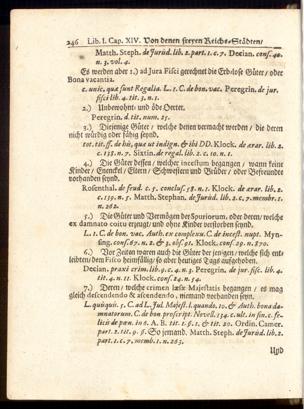 246 Lib. I. Cap. XIV. Von denen freyen Reichs-Städten/
Matth. Steph. de Jurisd. lib. 2. part. 1. c. 7. Decian. cons. 42.
n. 3. vol. 4.
Es werden aber 1.) ad Jura Fisci gerechnet die Erblose Güter / oder
Bona vacantia.
c. unic. quæ sunt Regalia. L. 1. C. de bon. vac. Peregrin. de jur.
fisci lib. 4. tit. 3. n. 1.
2.) Unbewohnt- und öde Oerter.
Peregrin. d. tit. num. 25.
3.) Diejenige Güter / welche denen vermacht werden / die deren
nicht würdig oder fähig seynd.
tot. tit. ff. de his, quæ ut indign. & ibi DD. Klock. de ærar. lib. 2.
c. 138. n. 7. Sixtin. de regal. lib. 2. c. 10. n. 1.
4.) Die Güter dessen / welcher incestum begangen / wann keine
Kinder / Enenckel / Eltern / Schwestern und Brüder / oder Befreundte
vorhanden seynd.
Rosenthal. de feud. c. 5. conclus. 58. n. 1. Klock. de ærar. lib. 2.
c. 139. n. 5. Matth. Stephan. de Jurisd. lib. 2. c. 7. membr. 1.
n. 262.
5.) Die Güter und Vermögen der Spuriorum, oder deren / welche
ex damnato coitu erzeugt / und ohne Kinder verstorben seynd.
L. 1. C. de bon. vac. Auth. ex complexu. C. de incest. nupt. Myn-
sing. cons. 67. n. 2. & 3. obs. 91. Klock. cons. 29. n. 270.
6.) Vor Zeiten waren auch die Güter der jenigen / welche sich ent-
leibten / dem Fisco heimfällig / so aber heutiges Tags aufgehoben.
Decian. praxi crim. lib. 9. c. 4. n. 3. Peregrin. de jur. fisc. lib. 4.
tit. 4. n. 11. Klock. cons. 24. n. 54.
7.) Deren / welche crimen læsæ Majestatis begangen / es mag
gleich descendendo & ascendendo, niemand vorhanden seyn.
L. quisquis. 5. C. ad L. Jul. Majest. l. quando. 10. & Auth. bona da-
mnatorum. C. de bon. proscript. Novell. 134. c. ult. in fin. c. fe-
licis de pœn. in 6. A. B. tit. 1. §. 2. & tit. 20. Ordin. Camer.
part. 2. tit. 9. §. So jemand. Matth. Steph. de Jurisd. lib. 2.
part. 1. c. 7. memb. 1. n. 263.
Und